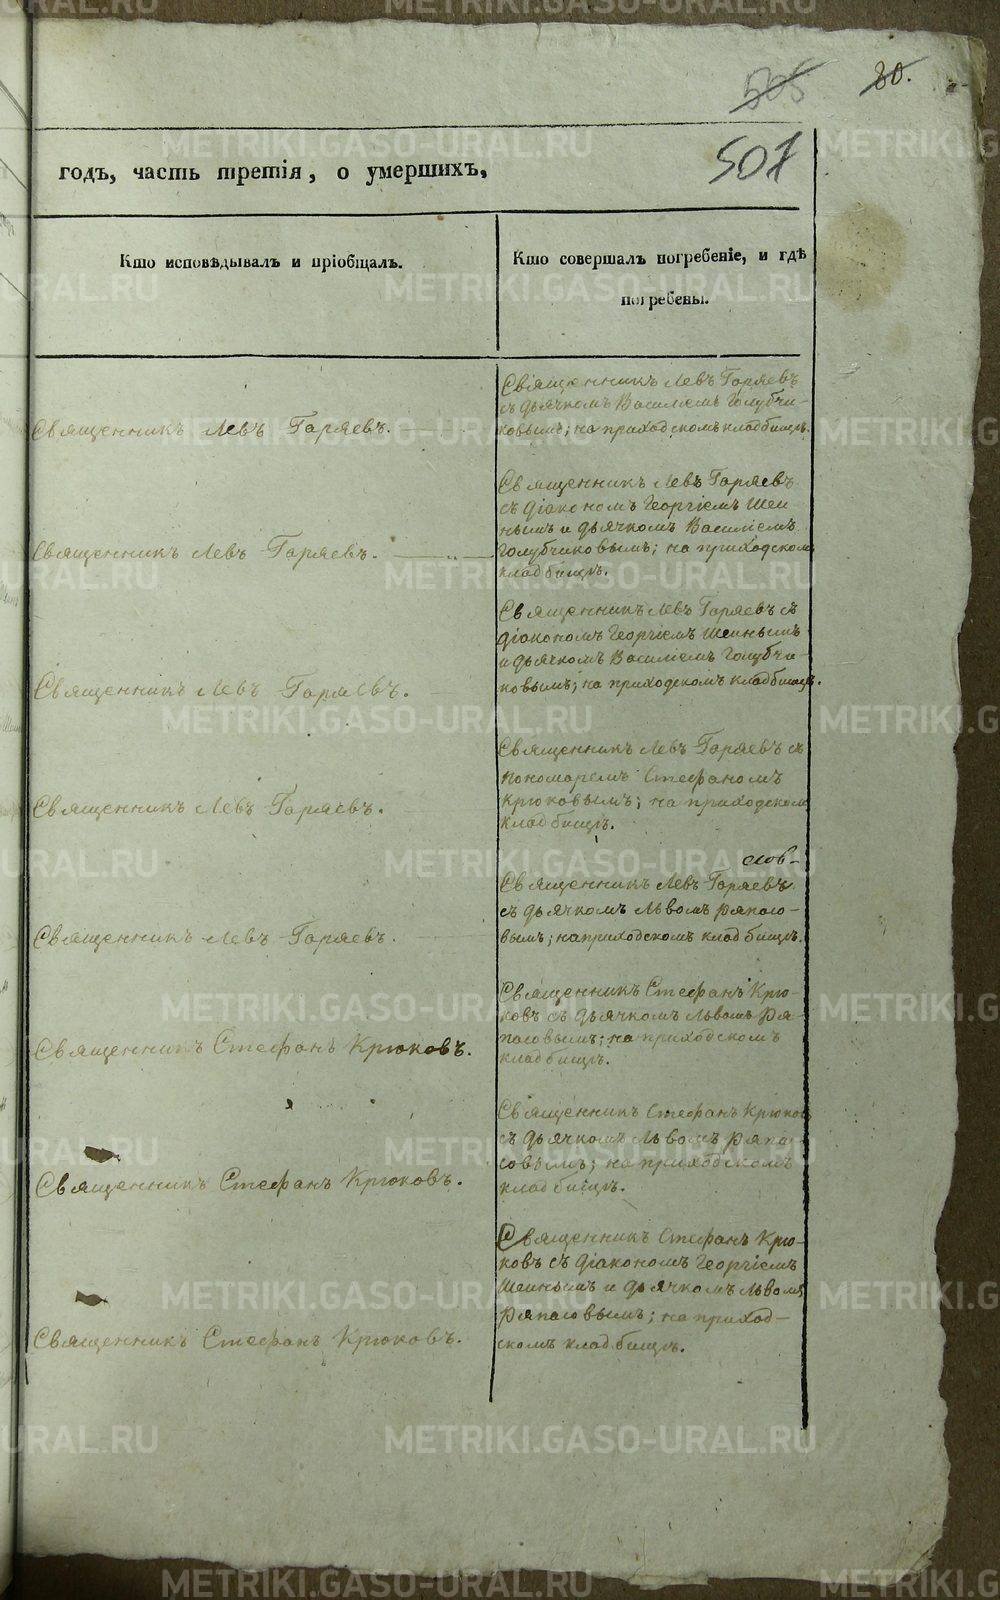 505 80.
507
годъ, часть третія, о умершихъ,
Кто исповѣдывалъ и пріобщалъ.
Кто совершалъ погребеніе, и гдѣ
погребены.
Священникъ Левъ Горяевъ.
Священникъ Левъ Горяевъ
съ дьячкомъ Василіемъ Голубчи-
ковымъ; на приходскомъ кладбищѣ.
Священникъ Левъ Горяевъ.
Священникъ Левъ Горяевъ
съ діакономъ Георгіемъ Шеи
нымъ и дьячкомъ Василіемъ
Голубчиковымъ; на приходском
кладбищѣ.
Священникъ Левъ Горяевъ.
Священникъ Левъ Горяевъ съ
діакономъ Георгіемъ Шеинымъ
и дьячкомъ Василіемъ Голубчи-
ковымъ; на приходскомъ кладбищѣ.
Священникъ Левъ Горяевъ.
Священникъ Левъ Горяевъ съ
пономаремъ Стефаномъ
Крюковымъ; на приходском
кладбищѣ.
Священникъ Левъ Горяевъ.
сов-
Священникъ Левъ Горяевъ
съ дьячкомъ Львомъ Ряпасо-
вымъ; на приходскомъ кладбищѣ.
Священникъ Стефанъ Крюковъ.
Священникъ Стефанъ Крю-
ковъ съ дьячкомъ Львомъ Ря-
пасовымъ; на приходскомъ
кладбищѣ.
Священникъ Стефанъ Крюковъ.
Священникъ Стефанъ Крюков
съ дьячкомъ Львомъ Ряпа-
совымъ; на приходскомъ
кладбищѣ.
Священникъ Стефанъ Крюковъ.
Священникъ Стефанъ Крю-
ковъ съ діакономъ Георгіемъ
Шеинымъ и дьячкомъ Львомъ
Ряпасовымъ; на приход-
скомъ кладбищѣ.
METRIKI.GASO-URAL.RU